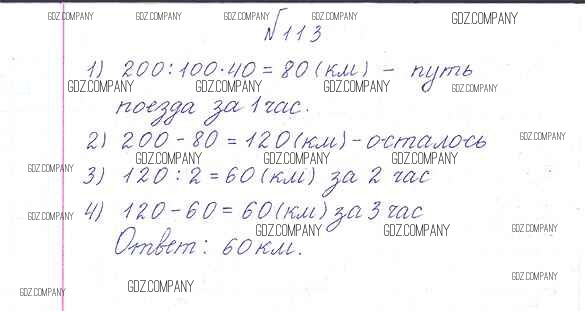 GDZ.COMPANY GDZ.COMPANY GDZ.COMPANY GDZ.COMPANY GDZ.COMPANY
№113
1) 200:100·40=80(км) - путь
GDZ.COMPANY GDZ.COMPANY GDZ.COMPANY GDZ.COMPANY
поезда за 1 час.
2) 200-80=120(км)-осталось
GDZ.COMPANY
GDZ.COMPANY GDZ.COMPANY GDZ.COMPANY
GDZ.COMPANY
3) 120:2=60(км) за 2 час
4) 120-60=60(км) за 3 час
GDZ.COMPANY
GDZ.COMPANY GDZ.COMPANY GDZ.COMPANY
Ответ: 60км.
GDZ.COMPANY
GDZ.COMPANY GDZ.COMPANY